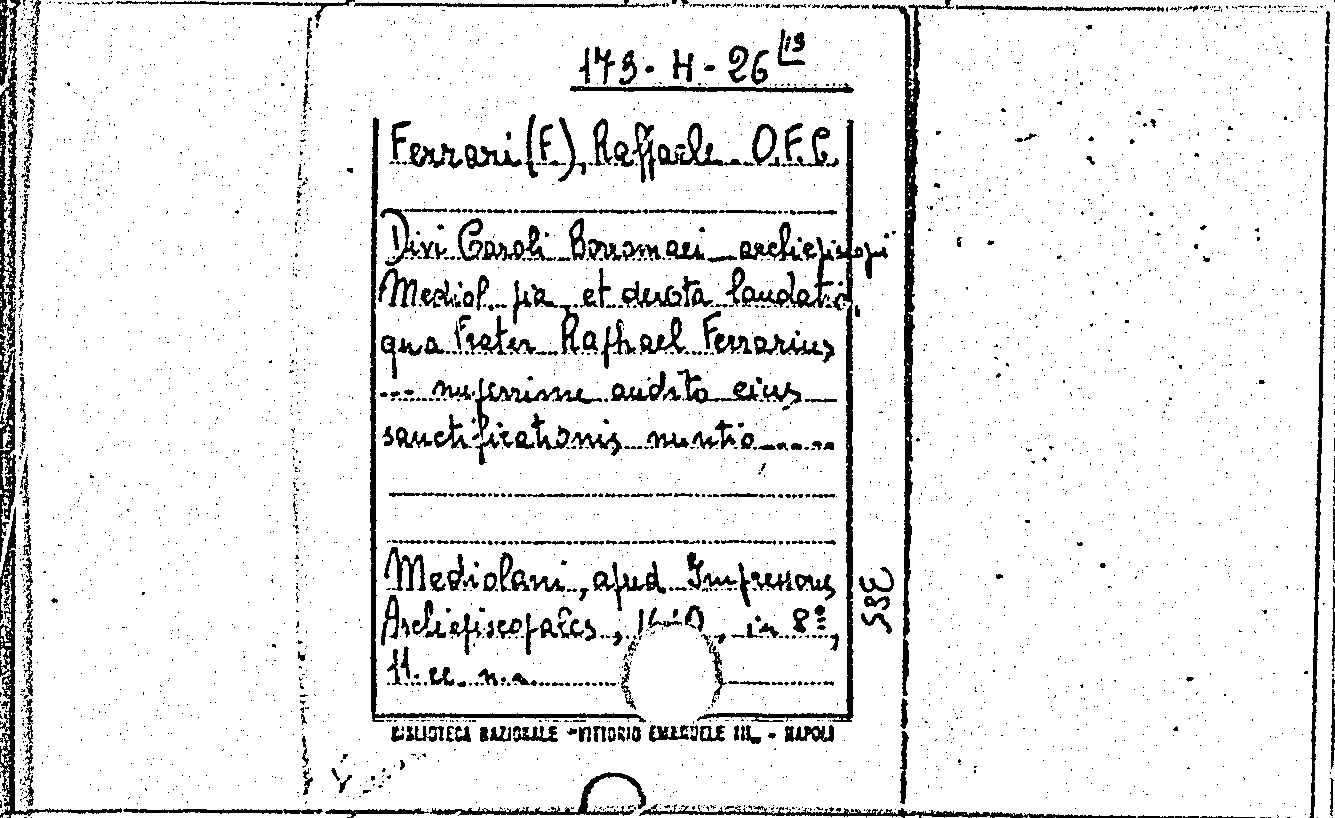 173-H-26 13
Ferrari (F.), Raffaele O.F.C.
Divi Caroli Borromaei archiepiscopi
Mediol. pia et devota laudatio,
qua Frater Raphael Ferrarius
... nuperrime audito eius
sanctificationis nuntio.....
Mediolani, apud Impressores
Archiepiscopales, in 8º,
11. cc. n.n.
BIBLIOTECA NAZIONALE "VITTORIO EMANUELE III" - NAPOLI